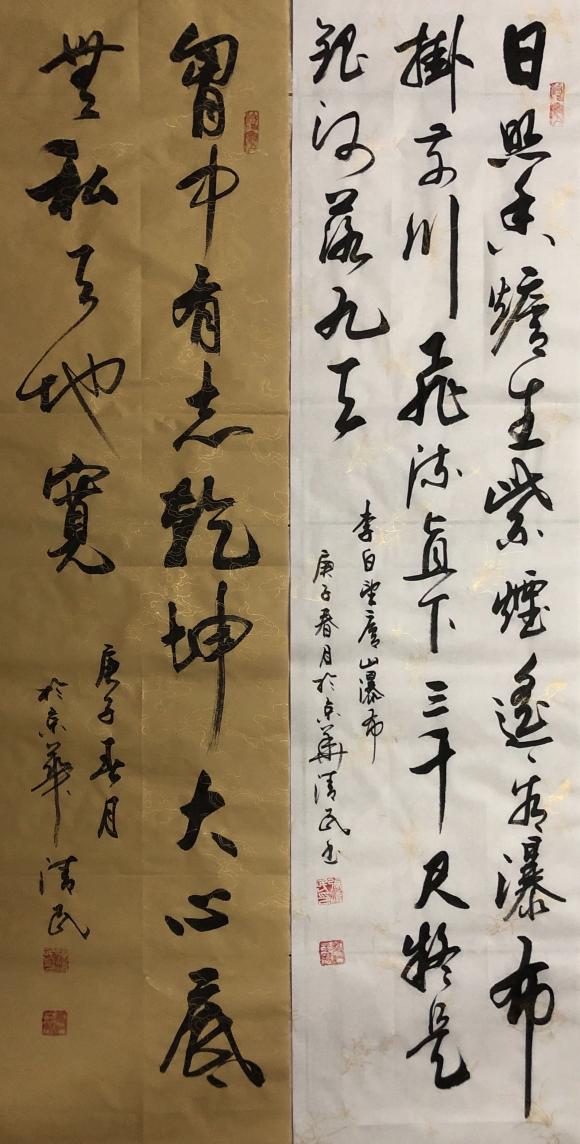 日照香爐生紫煙遙看瀑布
掛前川飛流直下三千尺疑是
銀河落九天
李白望廬山瀑布
庚子春月於京華清民书
胷中有志乾坤大心底
無私天地寬
庚子春月
於京華清民